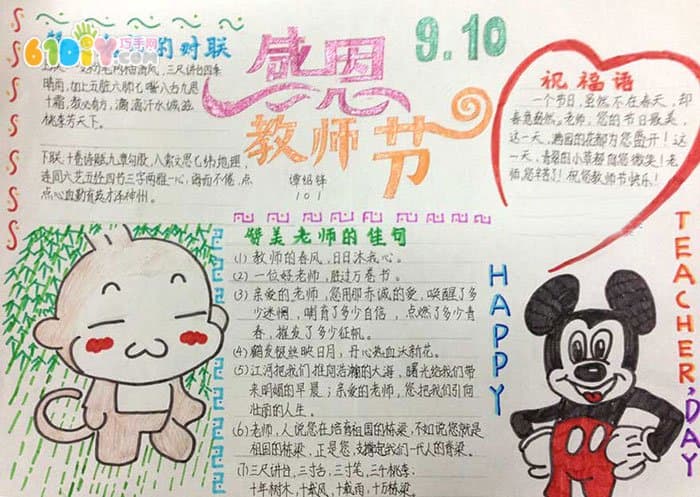 610DIY 巧手网
的对联
感恩
教师节
9.10
谭绍铎
101
晴雨,加上五脏六腑七嘴八舌九思
十霜,教达有方,滴滴汗水诚滋
桃李芳天下。
下联 十卷诗赋九章勾股,八索文思七纬地理,
连同六艺五经四书三字两雅一心,诲而不倦,点
点心血勤育英才泽神州。
祝福语
一个节日,虽然不在春天,却
春意盎然。老师,您的节日最美,
这一天,满园的花都为您盛开!这
一天,青翠的小草都向您微笑!老
师,您辛苦了!祝您教师节快乐!
赞美老师的佳句
(1) 教师的春风,日日沐我心。
(2) 一位好老师,胜过万卷书。
(3) 亲爱的老师,您用那赤诚的爱,唤醒了多
少迷惘,哺育了多少自信,点燃了多少青
春,摧发了多少征帆。
(4) 鹤发银丝映日月,丹心热血沃新花。
(5) 江河把我们推向浩瀚的大海,曙光给我们带
来明媚的早晨;亲爱的老师,您把我们引向
壮丽的人生。
(6) 老师,人说您在培育祖国的栋梁,不如说您就是
祖国的栋梁,正是您,支撑起我们一代人的脊梁。
(7) 三尺讲台,三寸舌,三寸笔,三千桃李:
十年树木,十载风,十载雨,十万栋梁。
HAPPY
TEACHER'DAY